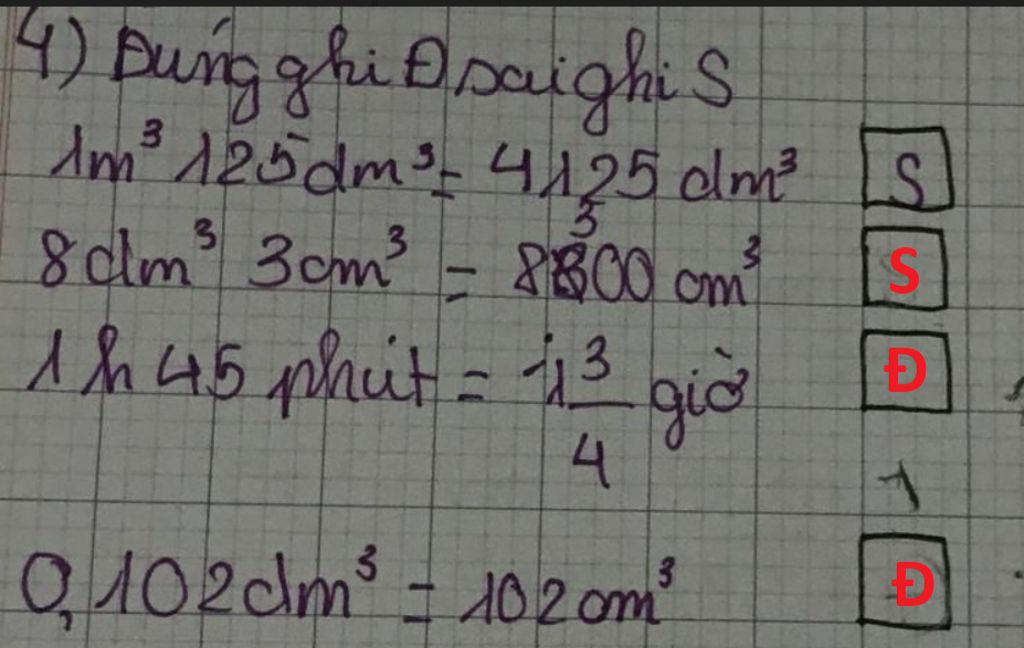 4) Đúng ghi Đ sai ghi S
1m³ 125dm³ = 4125 dm³ S
8dm³ 3cm³ = 8300 cm³ S
1h 45 phút = 1 3/4 giờ Đ
0,102dm³ = 102cm³ Đ